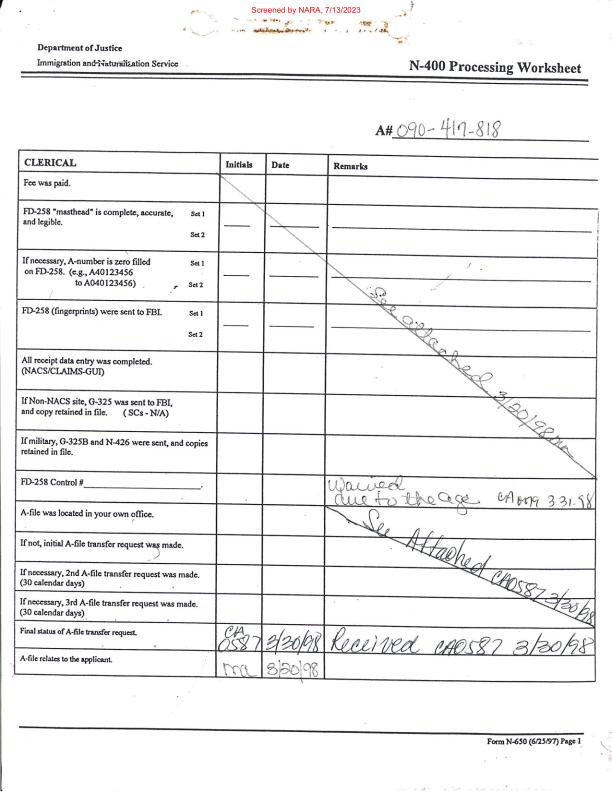 Screened by NARA, 7/13/2023
Department of Justice
Immigration and Naturalization Service
N-400 Processing Worksheet
A# 090-417-818
CLERICAL Initials Date Remarks
Fee was paid.
FD-258 "masthead" is complete, accurate, Set 1
and legible.
Set 2
If necessary, A-number is zero filled Set 1
on FD-258. (e.g., A40123456
to A040123456) Set 2
FD-258 (fingerprints) were sent to FBI. Set 1
Set 2
See attached 3/20/98 ma
All receipt data entry was completed.
(NACS/CLAIMS-GUI)
If Non-NACS site, G-325 was sent to FBI,
and copy retained in file. ( SCs - N/A)
If military, G-325B and N-426 were sent, and copies
retained in file.
FD-258 Control # Waived
due to the age 3.31.98
A-file was located in your own office.
See Attached CA0587 3/30/98
If not, initial A-file transfer request was made.
If necessary, 2nd A-file transfer request was made.
(30 calendar days)
If necessary, 3rd A-file transfer request was made.
(30 calendar days)
Final status of A-file transfer request. CA 0587 3/30/98 Received CA0587 3/30/98
A-file relates to the applicant. ma 3/20/98
Form N-650 (6/25/97) Page 1